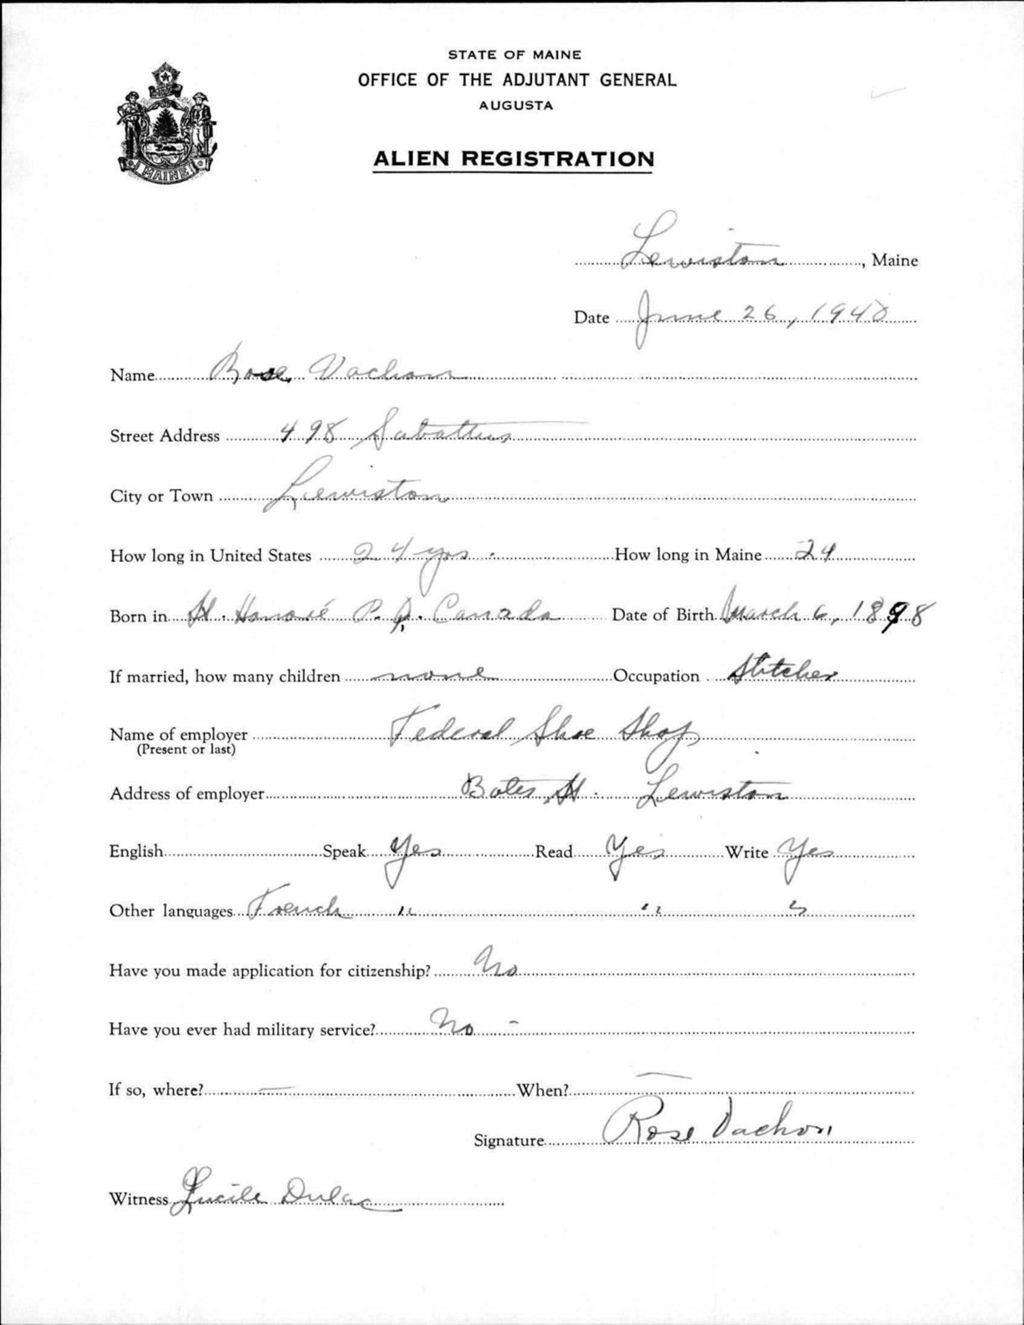 STATE OF MAINE
OFFICE OF THE ADJUTANT GENERAL
AUGUSTA
ALIEN REGISTRATION
MAINE
Lewiston, Maine
Date June 26, 1940
Name Rose Vachon
Street Address 498 Sabattus
City or Town Lewiston
How long in United States 24 yrs. How long in Maine 24
Born in St. Honoré P. Q. Canada Date of Birth March 6, 1898
If married, how many children none Occupation Stitcher
Name of employer Federal Shoe Shop
(Present or last)
Address of employer Bates St. Lewiston
English Speak Yes Read Yes Write Yes
Other languages French " " "
Have you made application for citizenship? No
Have you ever had military service? No -
If so, where? — When? —
Signature Rose Vachon
Witness Lucile Dulac